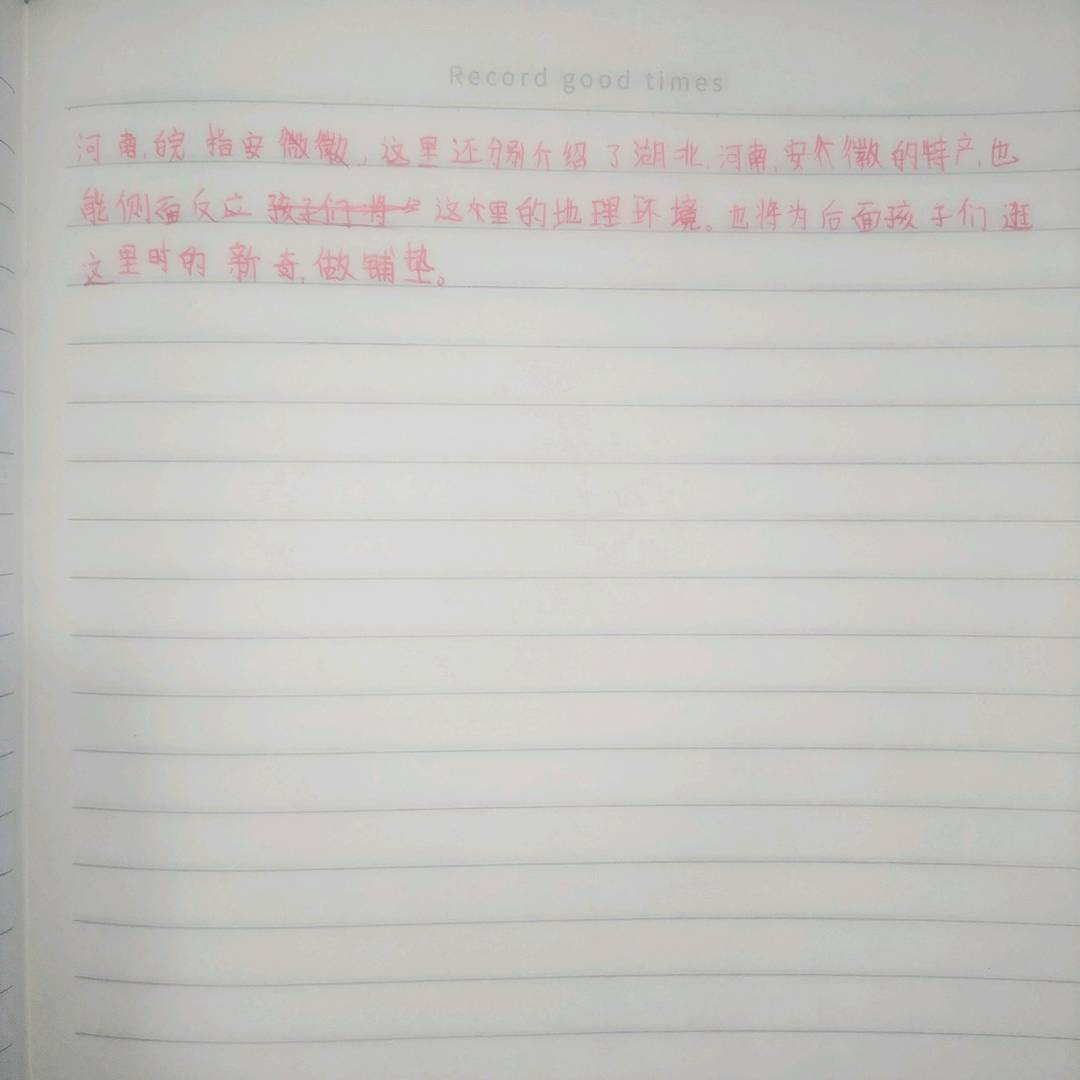 Record good times
河南,皖 指安微徽,这里还分别介绍了湖北,河南,安徽的特产,也
能侧面反应 孩子们将 这里的地理环境。也将为后面孩子们逛
这里时的新奇,做铺垫。